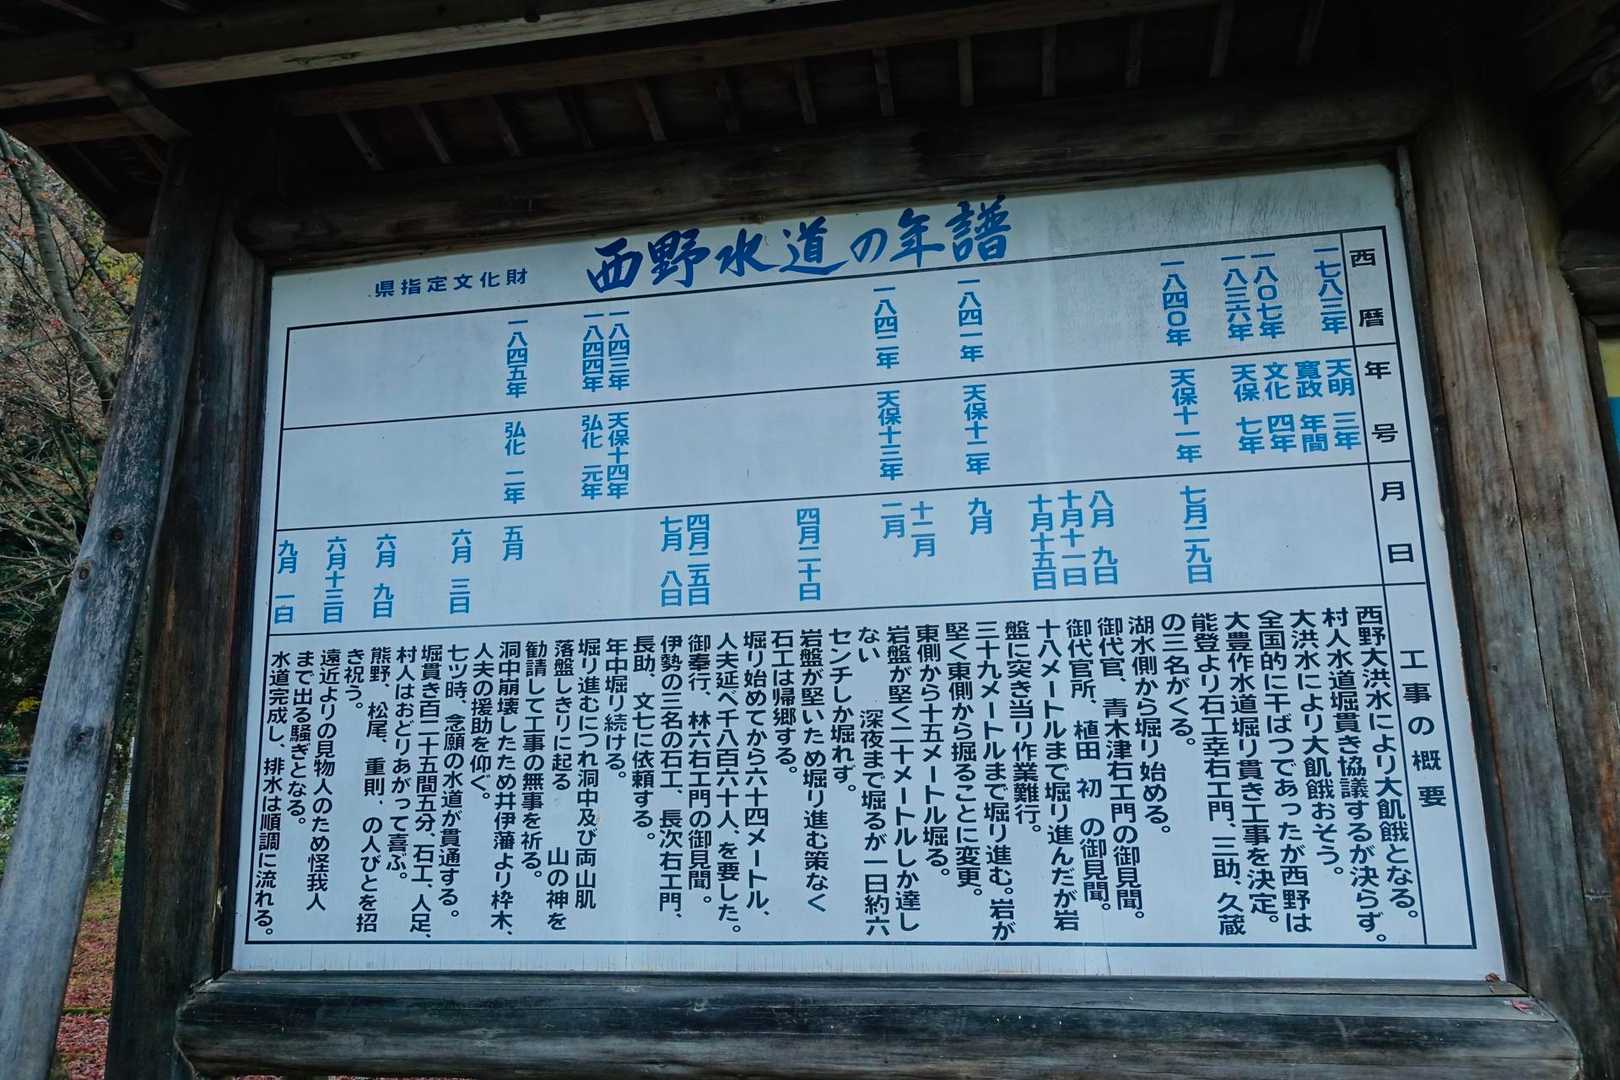 県指定文化財
西野水道の年譜
西暦
年号
月日
工事の概要
一七八三年
天明 三年
西野大洪水により大飢餓となる。
寛政 年間
村人水道堀貫き協議するが決らず。
一八〇七年
文化 四年
大洪水により大飢餓おそう。
一八三六年
天保 七年
全国的に干ばつであったが西野は
大豊作水道堀り貫き工事を決定。
一八四〇年
天保十一年
七月二九日
能登より石工幸右エ門、三助、久蔵
の三名がくる。
湖水側から堀り始める。
八月 九日
御代官、青木津右エ門の御見聞。
十月十一日
御代官所、植田 初 の御見聞。
十月十五日
十八メートルまで堀り進んだが岩
盤に突き当り作業難行。
一八四一年
天保十二年
九月
三十九メートルまで堀り進む。岩が
堅く東側から掘ることに変更。
十二月
東側から十五メートル堀る。
一八四二年
天保十三年
二月
岩盤が堅く二十メートルしか達し
ない 深夜まで堀るが一日約六
センチしか堀れず。
四月二十日
岩盤が堅いため堀り進む策なく
石工は帰郷する。
堀り始めてから六十四メートル、
人夫延べ千八百六十人、を要した。
四月二五日
御奉行、林六右エ門の御見聞。
七月 八日
伊勢の三名の石工、長次右エ門、
長助、文七に依頼する。
一八四三年
天保十四年
年中堀り続ける。
一八四四年
弘化 元年
堀り進むにつれ洞中及び両山肌
落盤しきりに起る 山の神を
勧請して工事の無事を祈る。
一八四五年
弘化 二年
五月
洞中崩壊したため井伊藩より枠木、
人夫の援助を仰ぐ。
六月 三日
七ツ時、念願の水道が貫通する。
堀貫き百二十五間五分、石工、人足、
村人はおどりあがって喜ぶ。
六月 九日
熊野、松尾、重則、の人びとを招
き祝う。
六月十三日
遠近よりの見物人のため怪我人
まで出る騒ぎとなる。
九月 一日
水道完成し、排水は順調に流れる。